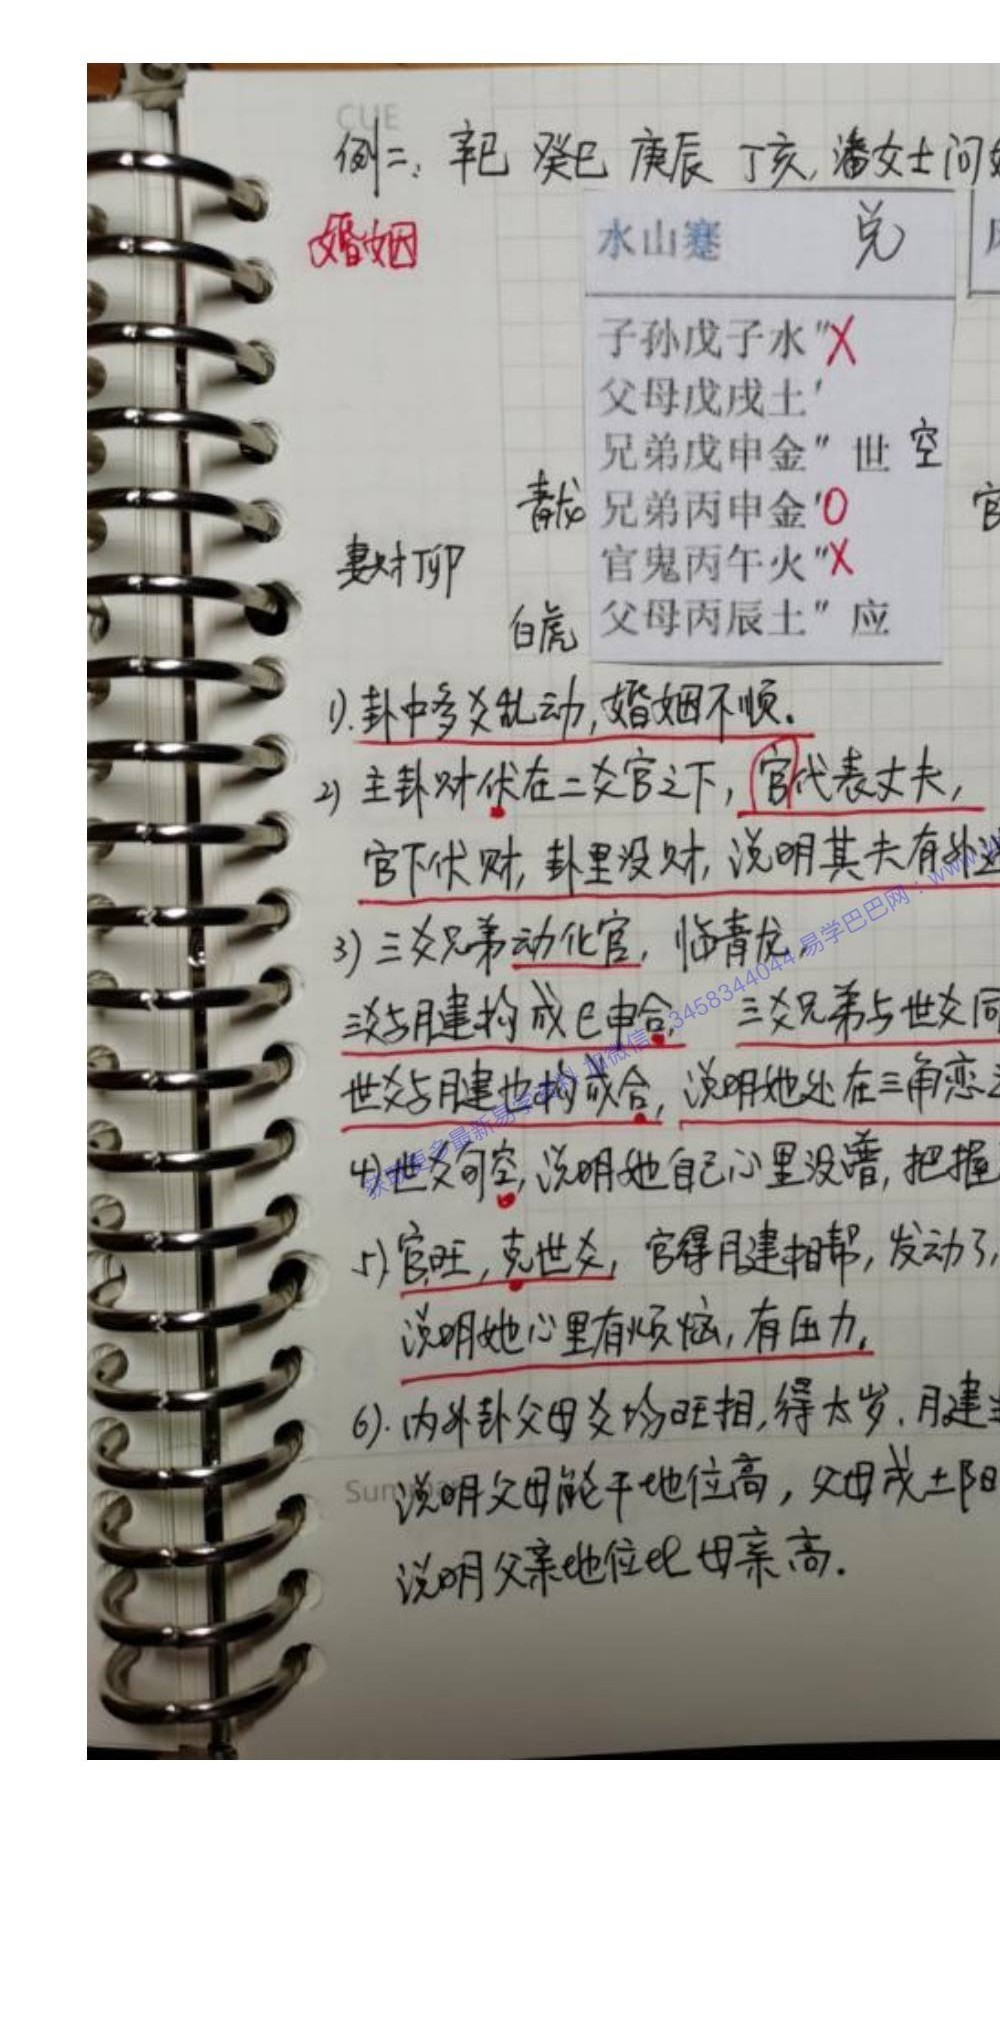 CUE
例二：辛巳 癸巳 庚辰 丁亥，潘女士问
婚姻
水山蹇 兑
子孙戊子水〃X
父母戊戌土′
兄弟戊申金〃 世 空
青龙 兄弟丙申金′O 官
妻财丁卯 官鬼丙午火〃X
白虎 父母丙辰土〃 应
1).卦中多爻乱动，婚姻不顺。
2) 主卦财伏在二爻官之下，官代表丈夫，
官下伏财，卦里没财，说明其夫有外
3) 三爻兄弟动化官，临青龙，
三爻与月建构成巳申合， 三爻兄弟与世爻同
世爻与月建也构成合，说明她处在三角恋
4) 世爻旬空，说明她自己心里没谱，把握
5) 官旺，克世爻，官得月建相帮，发动了，
说明她心里有烦恼，有压力。
6).内外卦父母爻均旺相，得太岁、月建
说明父母能干地位高，父母戌土阳
说明父亲地位比母亲高.
3458344044 易学巴巴网：www.